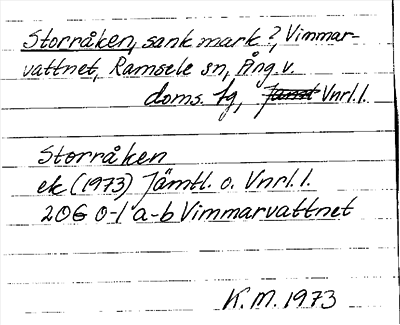 Storråken, sank mark?, Vimmar-
vattnet, Ramsele sn, Ång. v.
doms. lg, Jämt Vnrl. l.
Storråken
ek (1973) Jämtl. o. Vnrl. l.
20G 0-1 a-b Vimmarvattnet
K. M. 1973